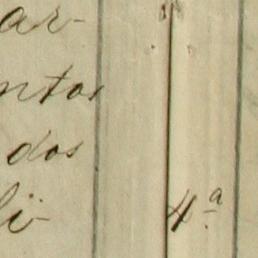 ar-
ntos
dos
li-
4ª